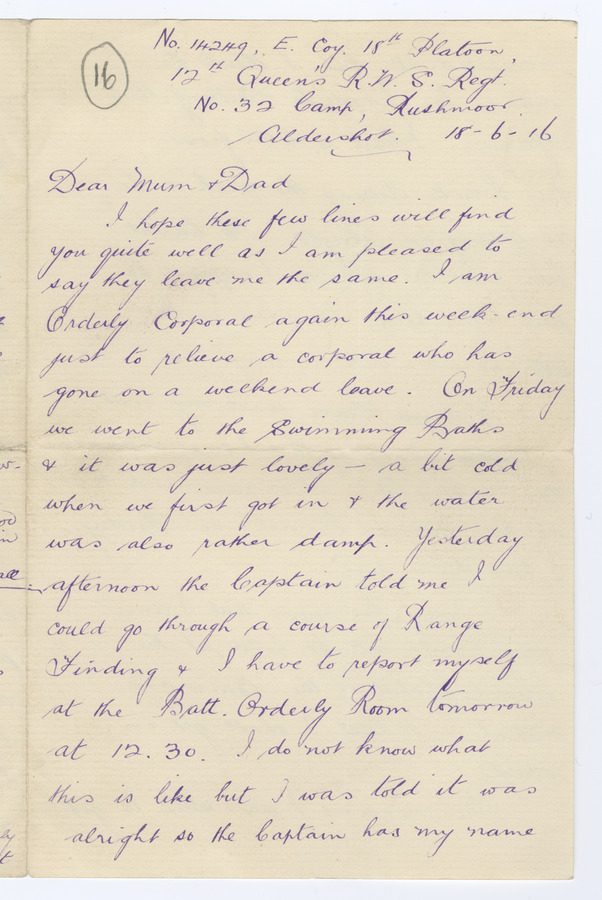 16
No. 14249, E. Coy. 18th Platoon,
12th Queen's R.W.S. Regt.
No. 32 Camp, Rushmoor.
Aldershot. 18-6-16
Dear Mum & Dad
I hope these few lines will find
you quite well as I am pleased to
say they leave me the same. I am
Orderly Corporal again this week-end
just to relieve a corporal who has
gone on a weekend leave. On Friday
we went to the Swimming Baths
& it was just lovely – a bit cold
when we first got in & the water
was also rather damp. Yesterday
afternoon the Captain told me I
could go through a course of Range
Finding & I have to report myself
at the Batt. Orderly Room tomorrow
at 12.30. I do not know what
this is like but I was told it was
alright so the Captain has my name